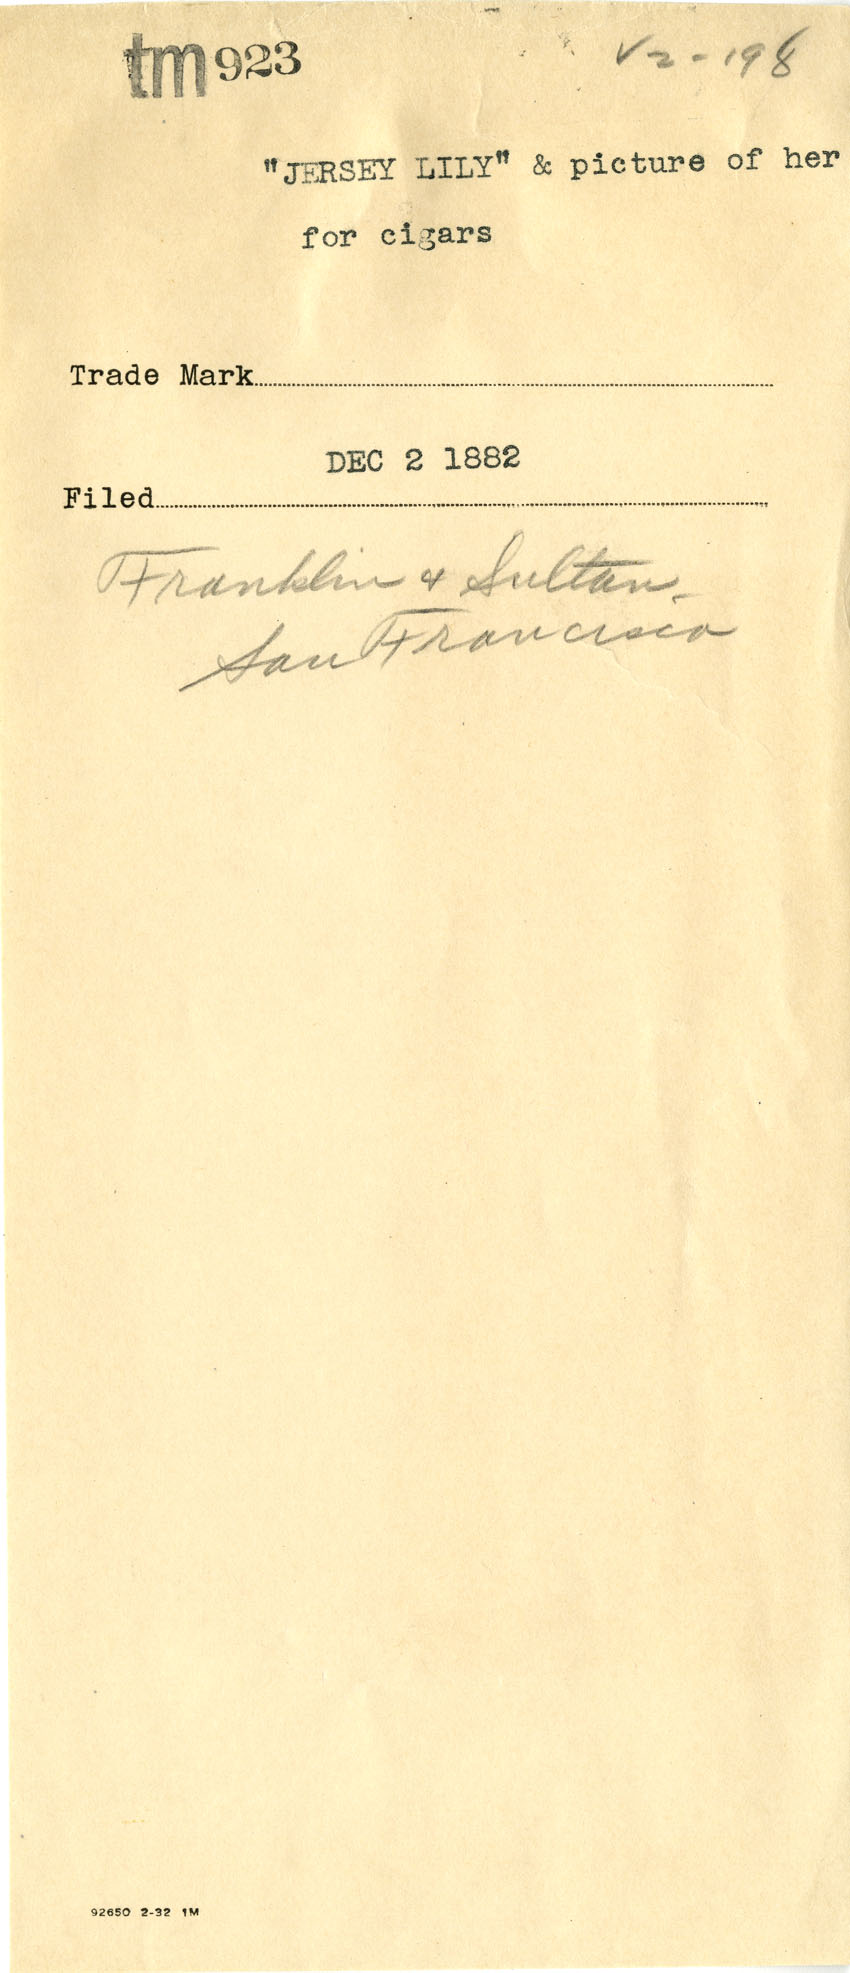 tm 923
V2-198
"JERSEY LILY" & picture of her
for cigars
Trade Mark
DEC 2 1882
Filed
Franklin & Sultan.
San Francisco
92650 2-32 1M